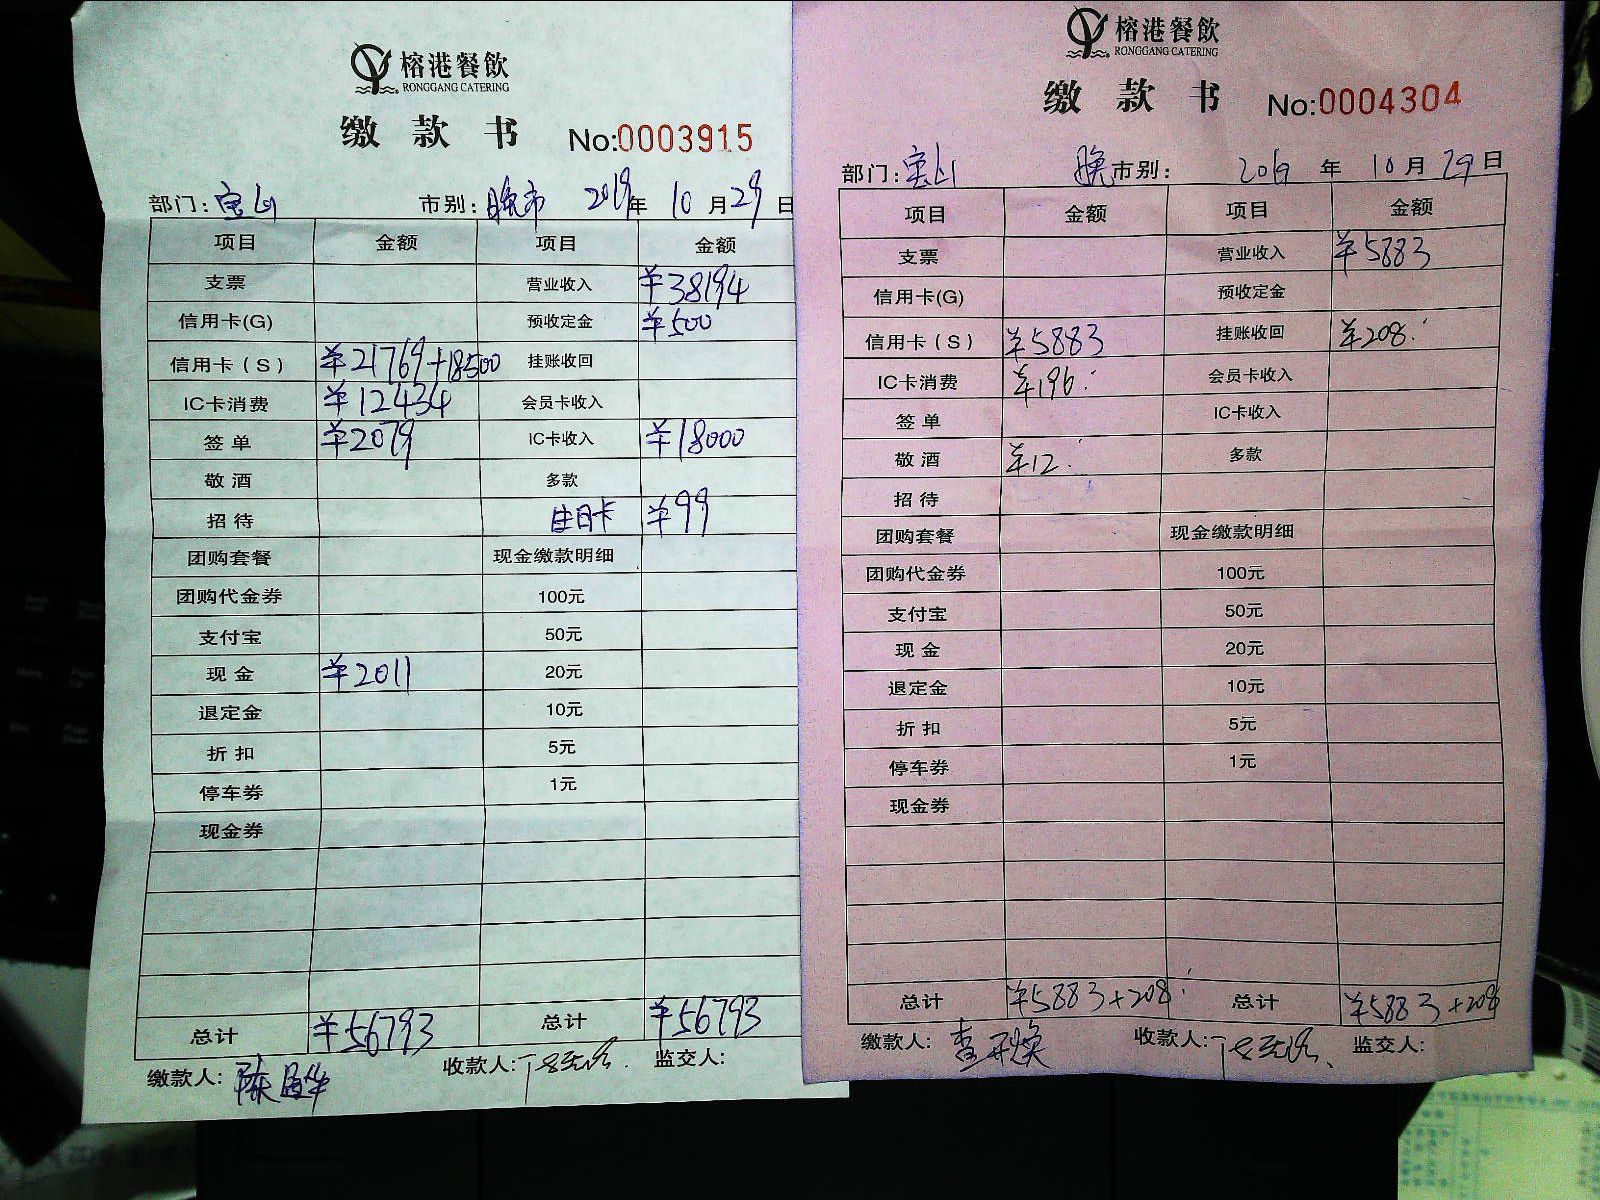 榕港餐飲
RONGGANG CATERING
缴款书 No:0003915
部门:宝山 市别:晚市 2019年10月29日
项目 金额 项目 金额
支票 营业收入 ¥38194
信用卡(G) 预收定金 ¥500
信用卡(S) ¥21769+18500 挂账收回
IC卡消费 ¥12434 会员卡收入
签单 ¥2079 IC卡收入 ¥18000
敬酒 多款
招待 生日卡 ¥99
团购套餐 现金缴款明细
团购代金券 100元
支付宝 50元
现金 ¥2011 20元
退定金 10元
折扣 5元
停车券 1元
现金券
总计 ¥56793 总计 ¥56793
缴款人: 收款人: 监交人:
榕港餐飲
RONGGANG CATERING
缴款书 No:0004304
部门:宝山 晚市别: 2019年10月29日
项目 金额 项目 金额
支票 营业收入 ¥5883
信用卡(G) 预收定金
信用卡(S) ¥5883 挂账收回 ¥208.
IC卡消费 ¥196. 会员卡收入
签单 IC卡收入
敬酒 ¥12. 多款
招待
团购套餐 现金缴款明细
团购代金券 100元
支付宝 50元
现金 20元
退定金 10元
折扣 5元
停车券 1元
现金券
总计 ¥5883+208. 总计 ¥5883+208
缴款人: 收款人: 监交人: